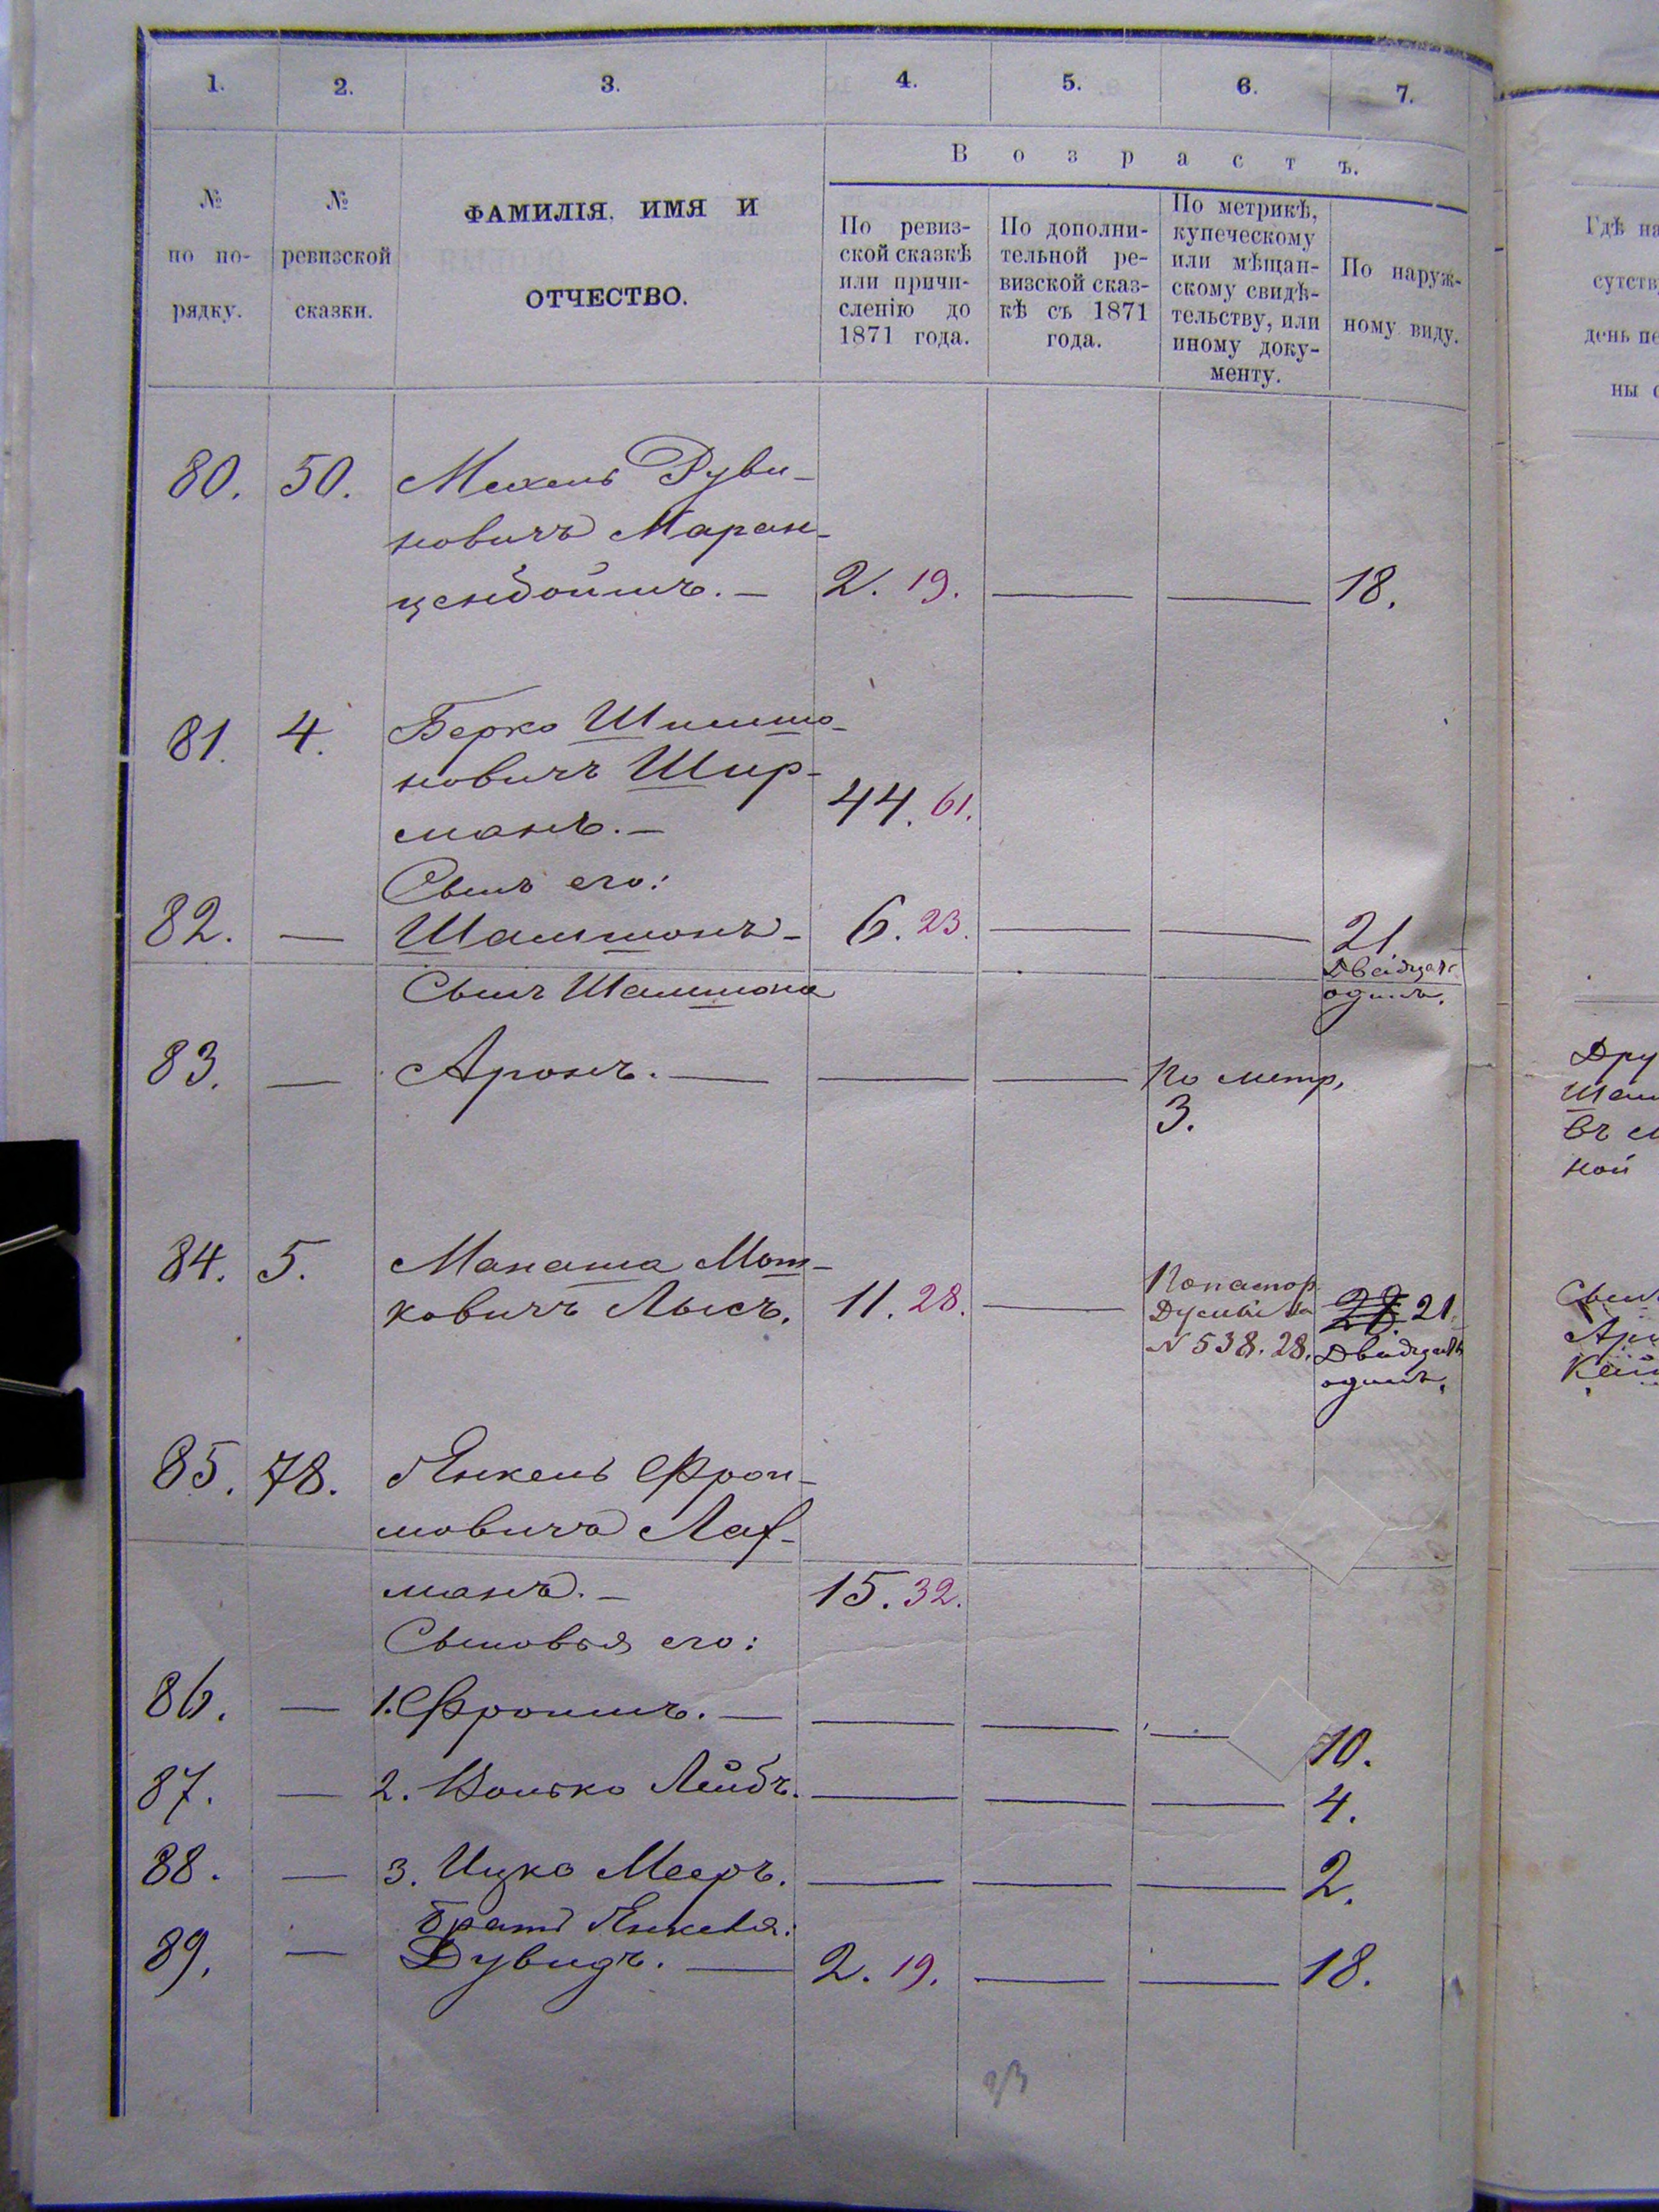 1. 2. 3. 4. 5. 6. 7.
В о з р а с т ъ.
№
по по-
рядку.
№
ревизской
сказки.
ФАМИЛІЯ, ИМЯ И
ОТЧЕСТВО.
По ревиз-
ской сказкѣ
или причи-
сленію до
1871 года.
По дополни-
тельной ре-
визской сказ-
кѣ съ 1871
года.
По метрикѣ,
купеческому
или мѣщан-
скому свидѣ-
тельству, или
иному доку-
менту.
По наруж-
ному виду.
80. 50. Мехель Руви-
новичъ Маран-
ценбоймъ. — 2. 19. — — 18.
81. 4. Берко Шимшо-
новичъ Шир-
манъ. — 44. 61.
Сынъ его:
82. — Шамшонъ — 6. 23. — — 21.
Двадцать
одинъ.
Сынъ Шамшона
83. — Аронъ. — — — По метр.
3.
84. 5. Манаша Мош-
ковичъ Лысъ. 11. 28. —
N 538. 28. 21.
Двадцать
одинъ.
85. 78. Янкель Фрои-
мовичъ Лаф-
манъ. — 15. 32.
Сыновья его:
86. — 1. Фроимъ. — — — — 10.
87. — 2. Волько Лейбъ. — — — 4.
88. — 3. Ицко Мееръ. — — — 2.
Братъ Янкеля:
89. — Дувидъ. — 2. 19. — — 18.
Гдѣ
сутств
день
ны
Дру
Шам
въ
ной
Сынъ